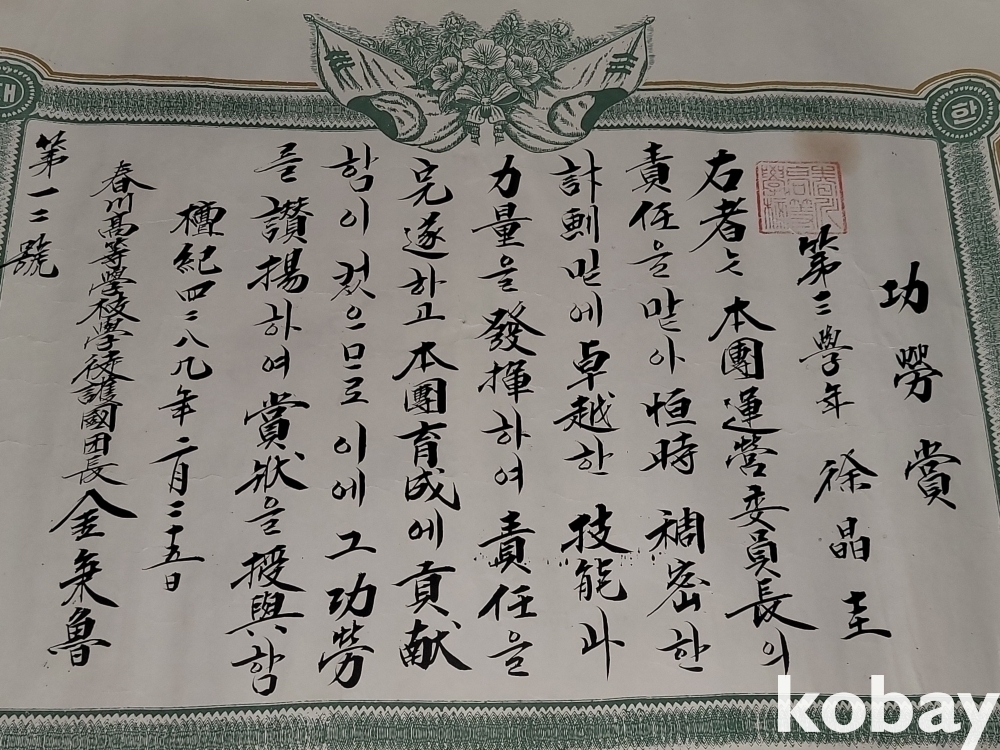 功勞賞
第三學年 徐晶圭
右者는 本團運營委員長의
責任을 맡아 恒時 稠密한
計劃밑에 卓越한 技能과
力量을 發揮하여 責任을
完遂하고 本團育成에 貢献
함이 컸으므로 이에 그 功勞
를 讃揚하여 賞狀을 授與함
檀紀四二八九年 二月二十五日
春川高等學校學徒護國団長 金
魯
第一二號
kobay